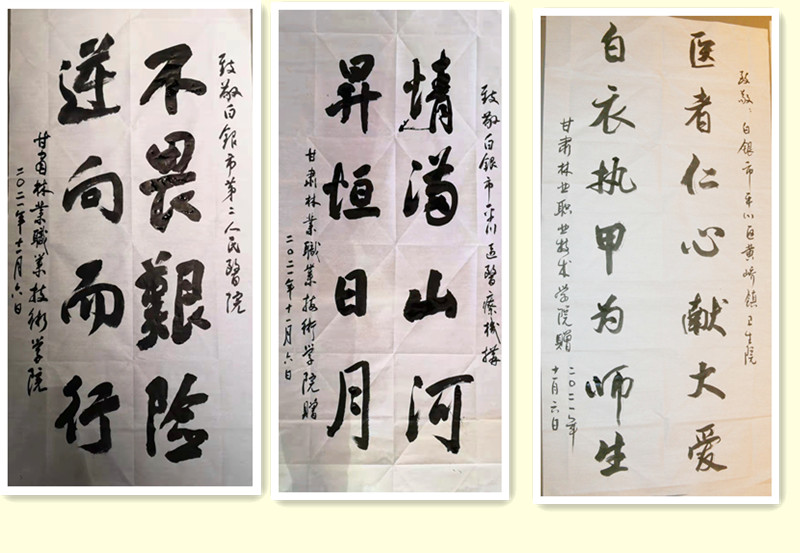 致敬白銀市第二人民醫院
不畏艱险
逆向而行
甘肅林業職業技術學院
二〇二一年十一月六日
致敬白銀市平川區醫療機構
情满山河
昇恒日月
甘肅林業職業技術學院贈
二〇二一年十一月六日
致敬:白银市平川区黄峤镇卫生院
医者仁心献大爱
白衣执甲为师生
甘肃林业职业技术学院赠
二〇二一年
十一月六日